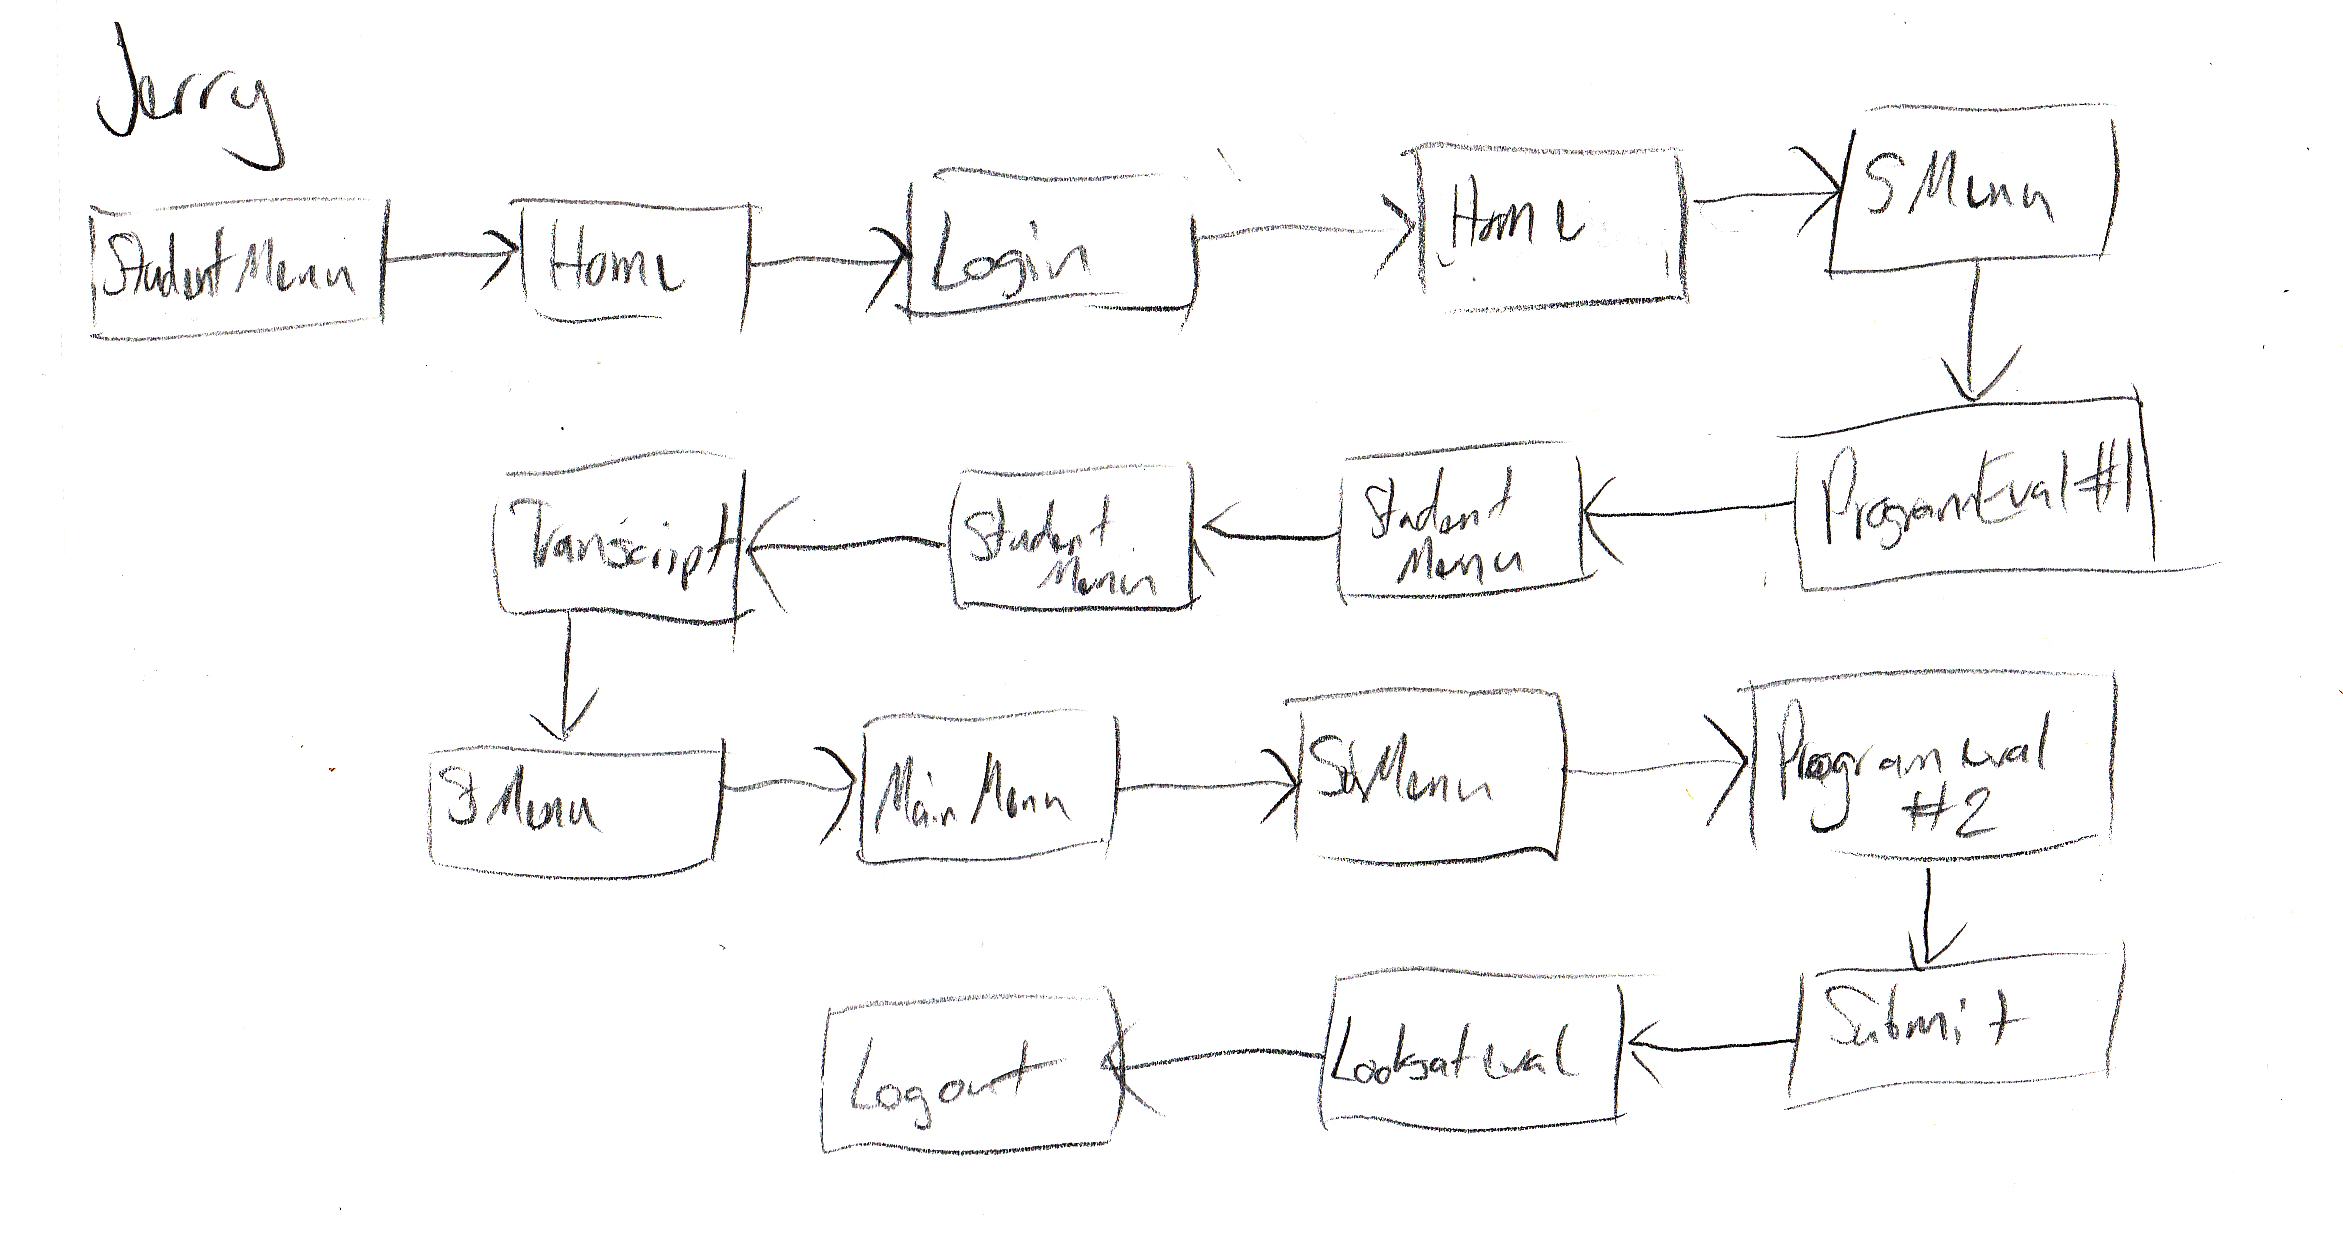 Jerry
Student Menu
Home
Login
Home
S Menu
Program Eval #1
Student
Menu
Student
Menu
Transcript
S Menu
Main Menu
Menu
Program eval
#2
Submit
Looks at eval
Logout